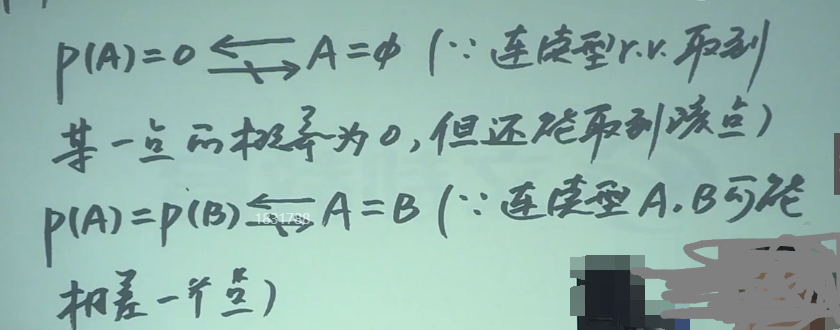 P(A)=0 ⇍⇏ A=φ (∵ 连续型r.v.取到
某一点的概率为0,但还能取到该点)
P(A)=P(B) A=B (∵ 连续型A.B可能
相差一个点)